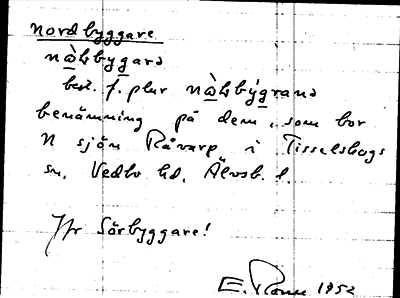 Nordbyggare
nàhbygara
best. f. plur nàhbýgrana
benämning på dem, som bor
N sjön Råvarp i Tisselskogs
sn, Vedbo hd, Älvsb. l.
Jfr Sörbyggare!
E. 1952